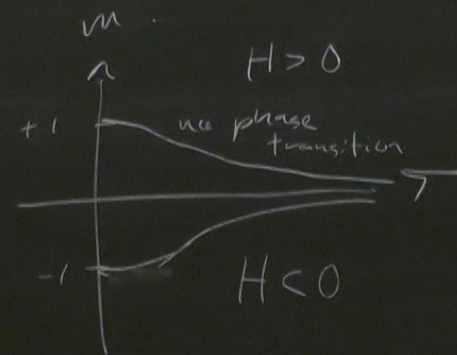 m
H > 0
+1
no phase
transition
-1
H < 0